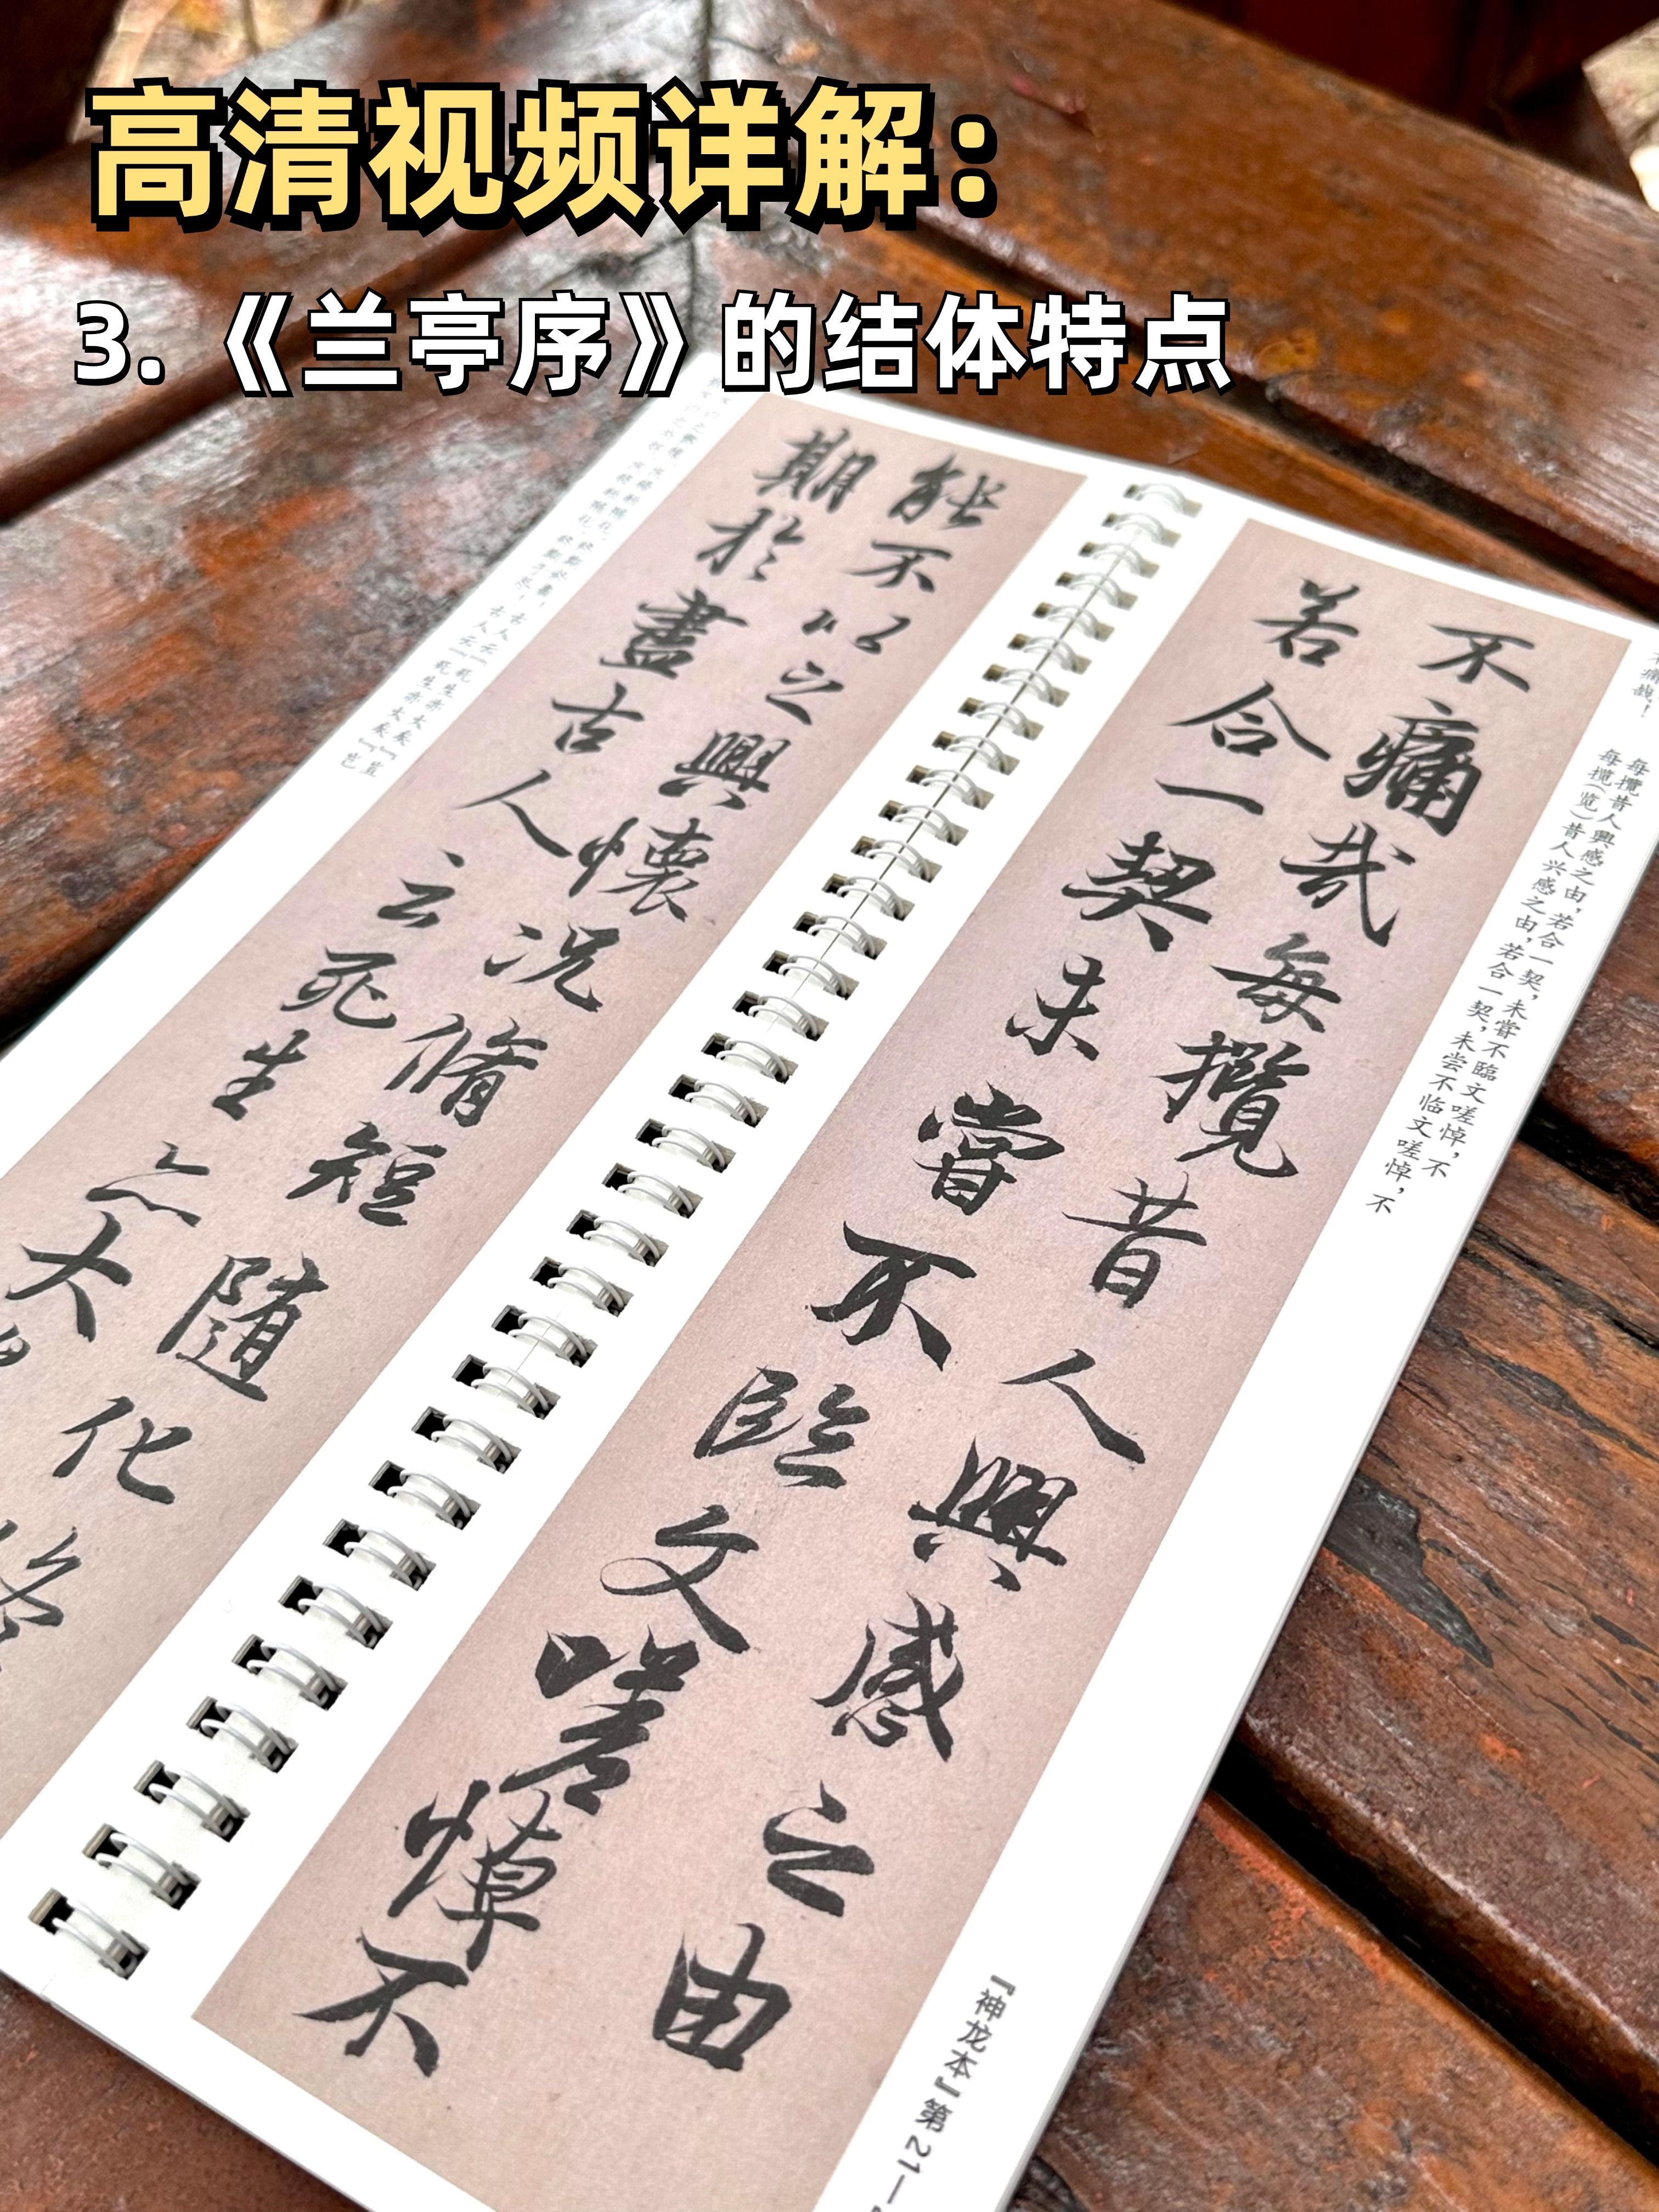 高清视频详解：
3.《兰亭序》的结体特点
不痛哉每攬昔人興感之由
若合一契未嘗不臨文嗟悼不
能不以之興懷況脩短隨化終
期於盡古人云死生亦大
不痛哉！
每攬昔人興感之由，若合一契，未嘗不臨文嗟悼，不
每揽（览）昔人兴感之由，若合一契，未尝不临文嗟悼，不
古人云『死生亦大矣』豈
古人云『死生亦大矣』岂
『神龙本』第21—